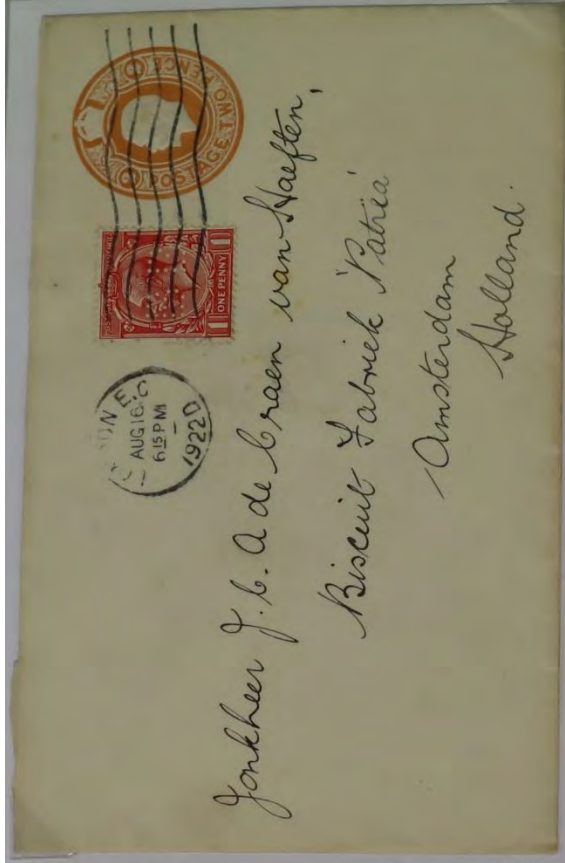 POSTAGE TWO PENCE
1 ONE PENNY 1
AUG 16
6 15 PM
1922 D
Jonkheer J. C. A de Craen van Haeften,
Biscuit Fabriek 'Patria'
Amsterdam
Holland.